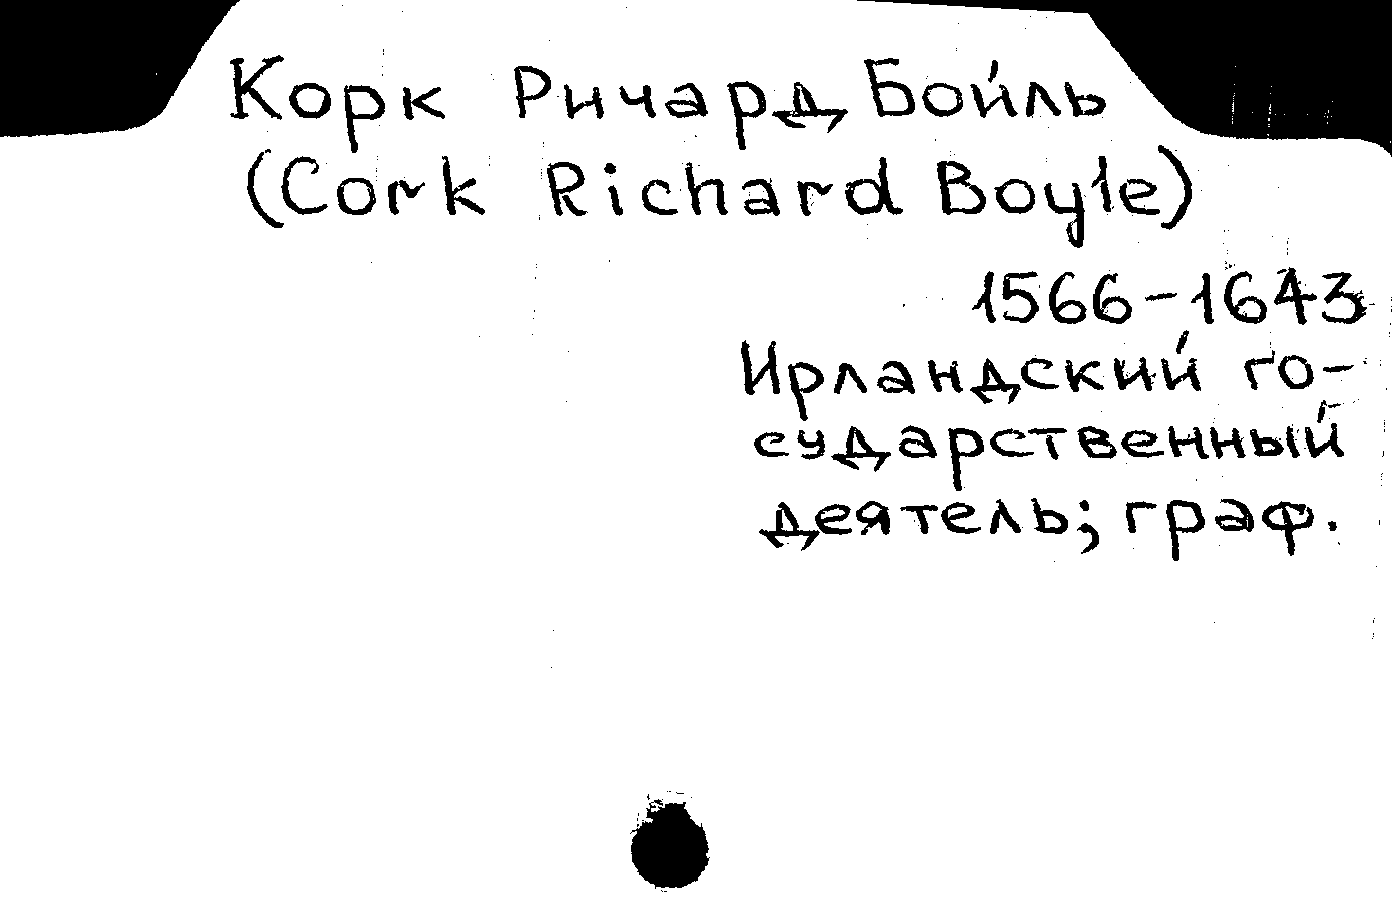 Корк Ричард Бойль
(Cork Richard Boyle)
1566-1643
Ирландский го-
сударственный
деятель; граф.